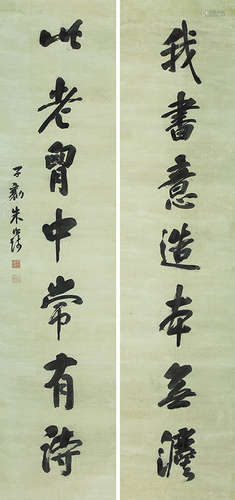 我書意造本無灋
此老胷中常有詩
子 朱